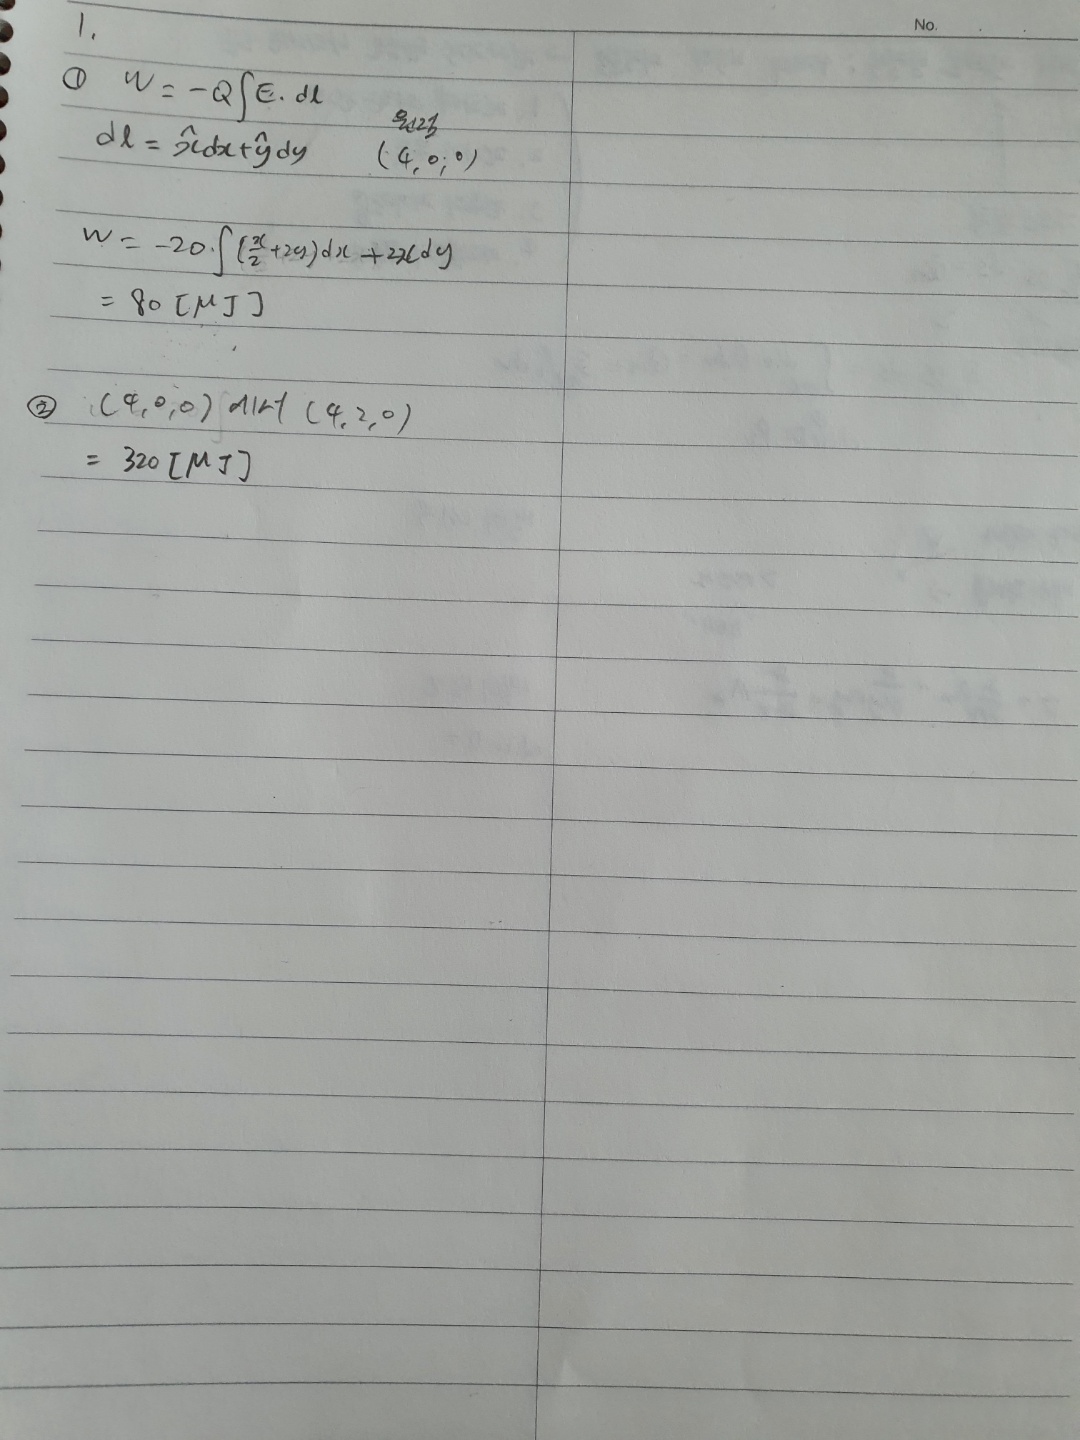 No.
1.
① W = -Q∫E. dl
dl = x̂dx+ŷdy 원점 (4,0,0)
W = -20.∫(x/2+2y)dx + 2xdy
= 80 [μJ]
② (4,0,0) 에서 (4,2,0)
= 320 [μJ]